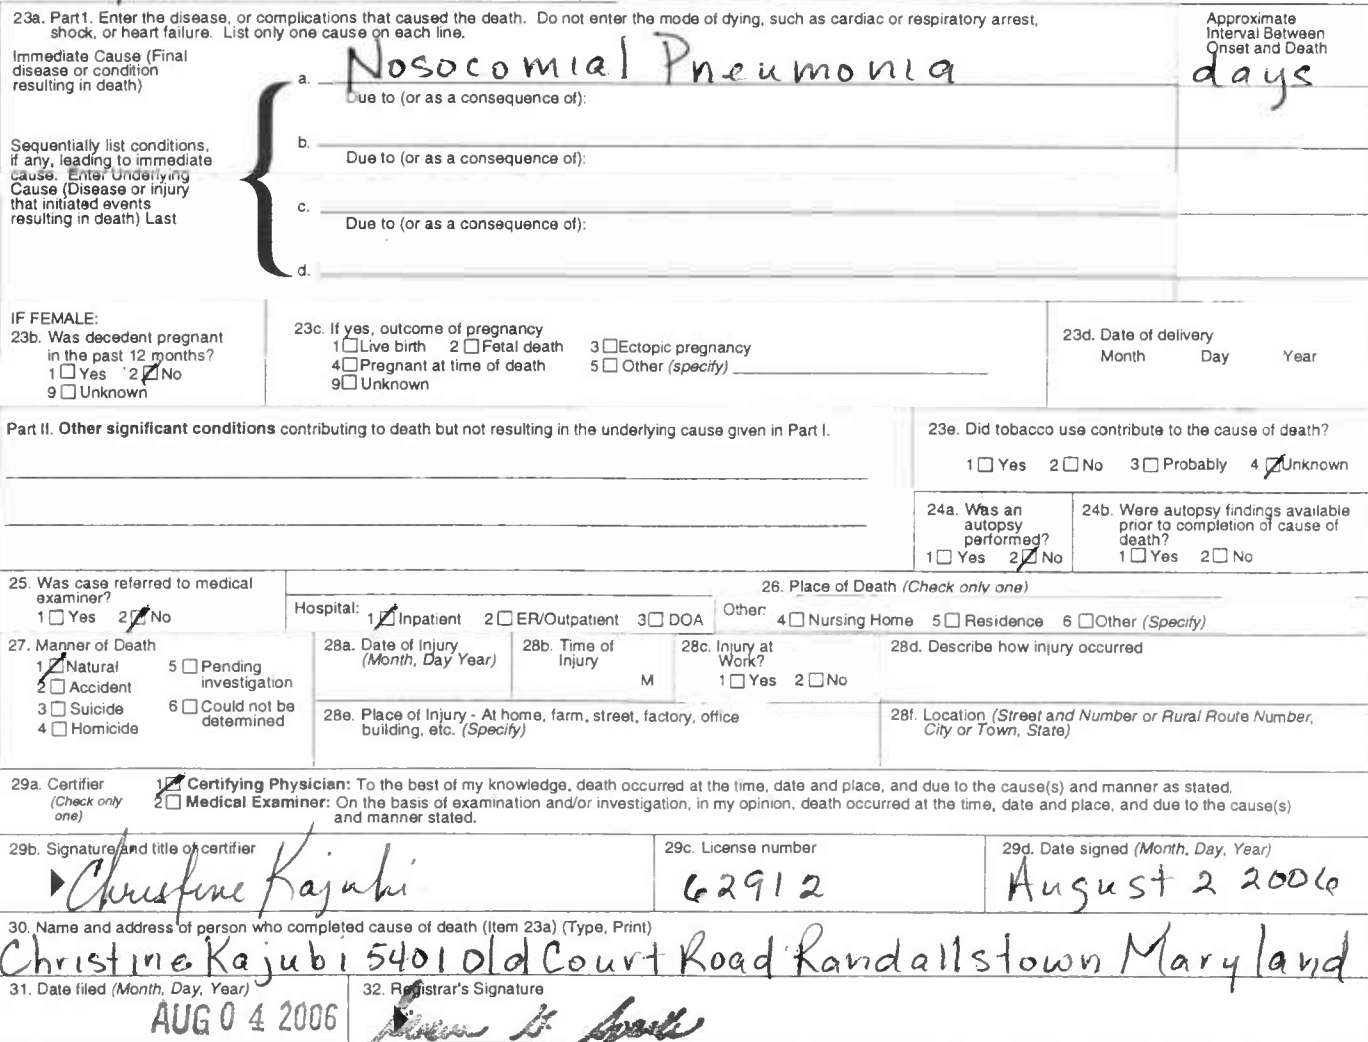 23a. Part1. Enter the disease, or complications that caused the death. Do not enter the mode of dying, such as cardiac or respiratory arrest,
shock, or heart failure. List only one cause on each line.
Approximate
Interval Between
Onset and Death
Immediate Cause (Final
disease or condition
resulting in death)
a. Nosocomial Pneumonia
days
Due to (or as a consequence of):
Sequentially list conditions,
if any, leading to immediate
cause. Enter Underlying
Cause (Disease or injury
that initiated events
resulting in death) Last
b.
Due to (or as a consequence of):
c.
Due to (or as a consequence of):
d.
IF FEMALE:
23b. Was decedent pregnant
in the past 12 months?
1 Yes 2 No
9 Unknown
23c. If yes, outcome of pregnancy
1 Live birth 2 Fetal death 3 Ectopic pregnancy
4 Pregnant at time of death 5 Other (specify)
9 Unknown
23d. Date of delivery
Month Day Year
Part II. Other significant conditions contributing to death but not resulting in the underlying cause given in Part I.
23e. Did tobacco use contribute to the cause of death?
1 Yes 2 No 3 Probably 4 Unknown
24a. Was an
autopsy
performed?
1 Yes 2 No
24b. Were autopsy findings available
prior to completion of cause of
death?
1 Yes 2 No
25. Was case referred to medical
examiner?
1 Yes 2 No
26. Place of Death (Check only one)
Hospital: 1 Inpatient 2 ER/Outpatient 3 DOA Other: 4 Nursing Home 5 Residence 6 Other (Specify)
27. Manner of Death
1 Natural
2 Accident
3 Suicide
4 Homicide
5 Pending
investigation
6 Could not be
determined
28a. Date of Injury
(Month, Day Year)
28b. Time of
Injury
M
28c. Injury at
Work?
1 Yes 2 No
28d. Describe how injury occurred
28e. Place of Injury - At home, farm, street, factory, office
building, etc. (Specify)
28f. Location (Street and Number or Rural Route Number,
City or Town, State)
29a. Certifier
(Check only
one)
1 Certifying Physician: To the best of my knowledge, death occurred at the time, date and place, and due to the cause(s) and manner as stated.
2 Medical Examiner: On the basis of examination and/or investigation, in my opinion, death occurred at the time, date and place, and due to the cause(s)
and manner stated.
29b. Signature and title of certifier
Christine Kajubi
29c. License number
62912
29d. Date signed (Month, Day, Year)
August 2 2006
30. Name and address of person who completed cause of death (Item 23a) (Type, Print)
Christine Kajubi 5401 Old Court Road Randallstown Maryland
31. Date filed (Month, Day, Year)
AUG 04 2006
32. Registrar's Signature